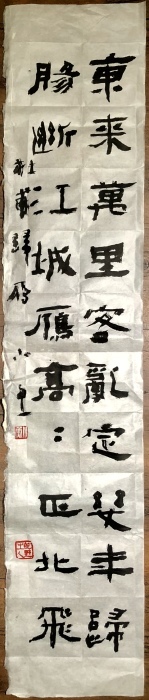 東来萬里客亂定幾年歸
腸斷江城鴈高〻正北飛
歸鴈